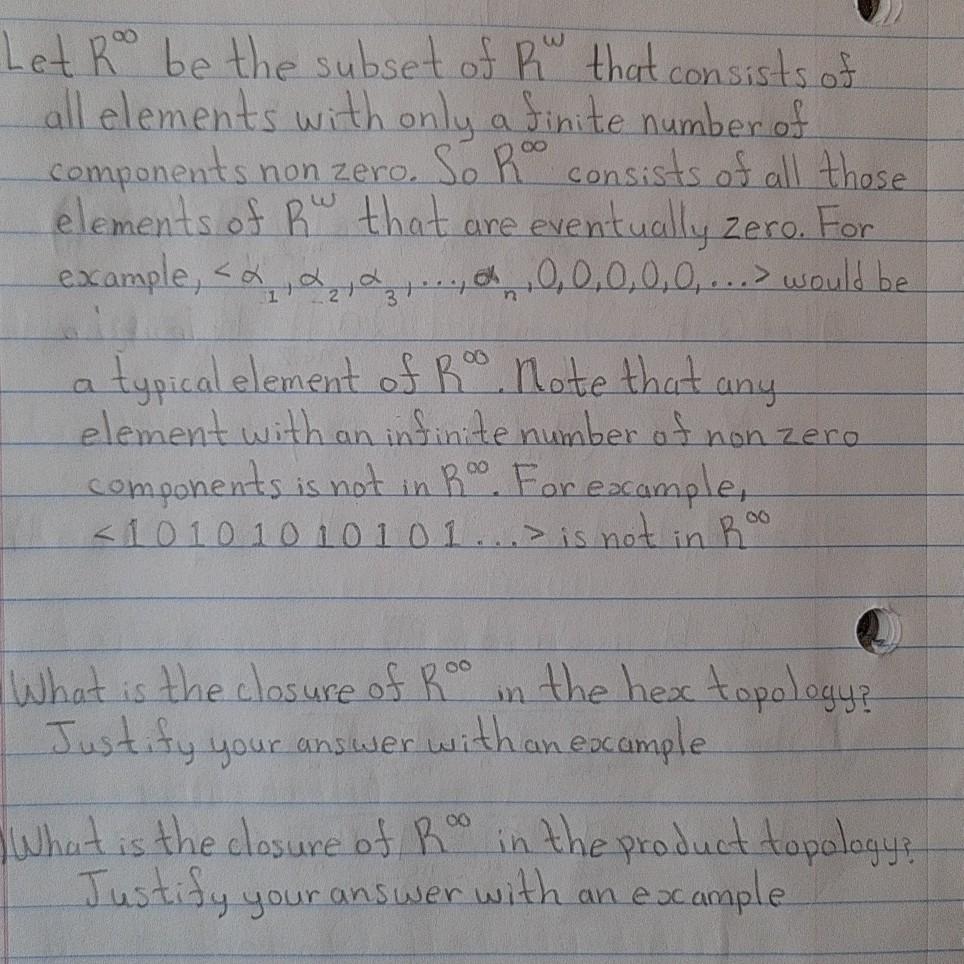 Let R^∞ be the subset of R^ω that consists of
all elements with only a finite number of
components non zero. So R^∞ consists of all those
elements of R^ω that are eventually zero. For
example, <α₁, α₂, α₃, ..., αₙ, 0, 0, 0, 0, 0, ...> would be
a typical element of R^∞. Note that any
element with an infinite number of non zero
components is not in R^∞. For example,
<1 0 1 0 1 0 1 0 1 0 1 0 1 ...> is not in R^∞
What is the closure of R^∞ in the hex topology?
Justify your answer with an example
What is the closure of R^∞ in the product topology?
Justify your answer with an example